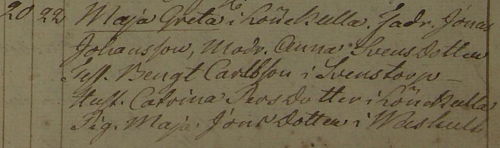 20 22 Maja Greta i Lönekulla. Fadr. Jonas
Johansson, Modr. Anna Svens Dotter
Test. Bengt Carlsson i Svenstorp
Hust. Catrina Pers dotter i Lönekulla
Pig. Maja Jons dotter i